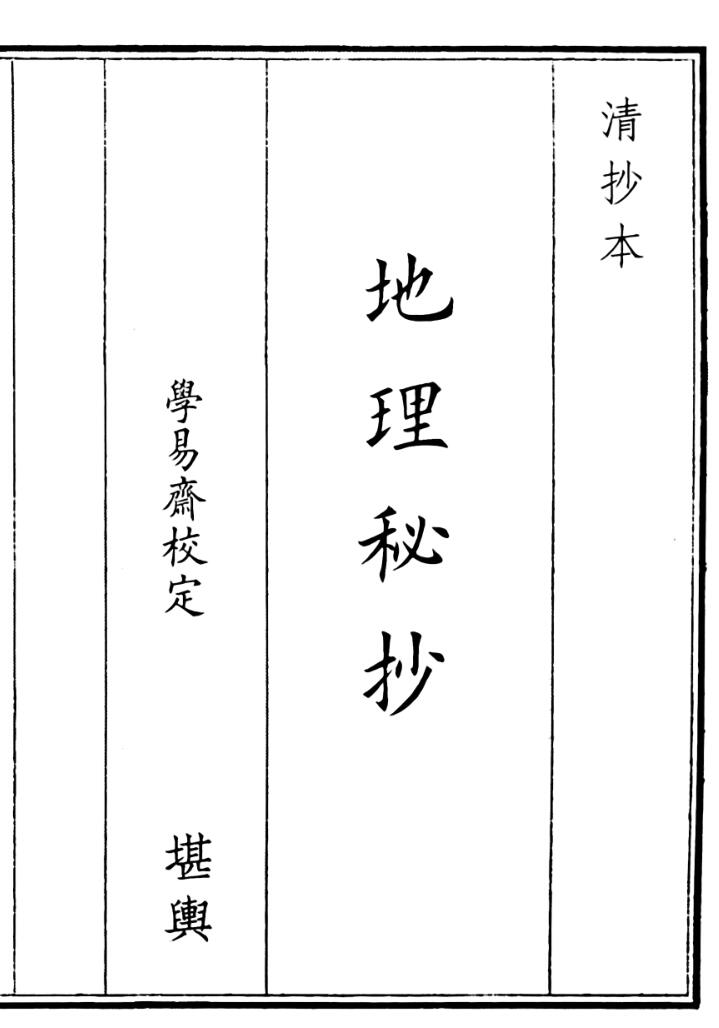 清抄本
地理秘抄
學易齋校定
堪輿